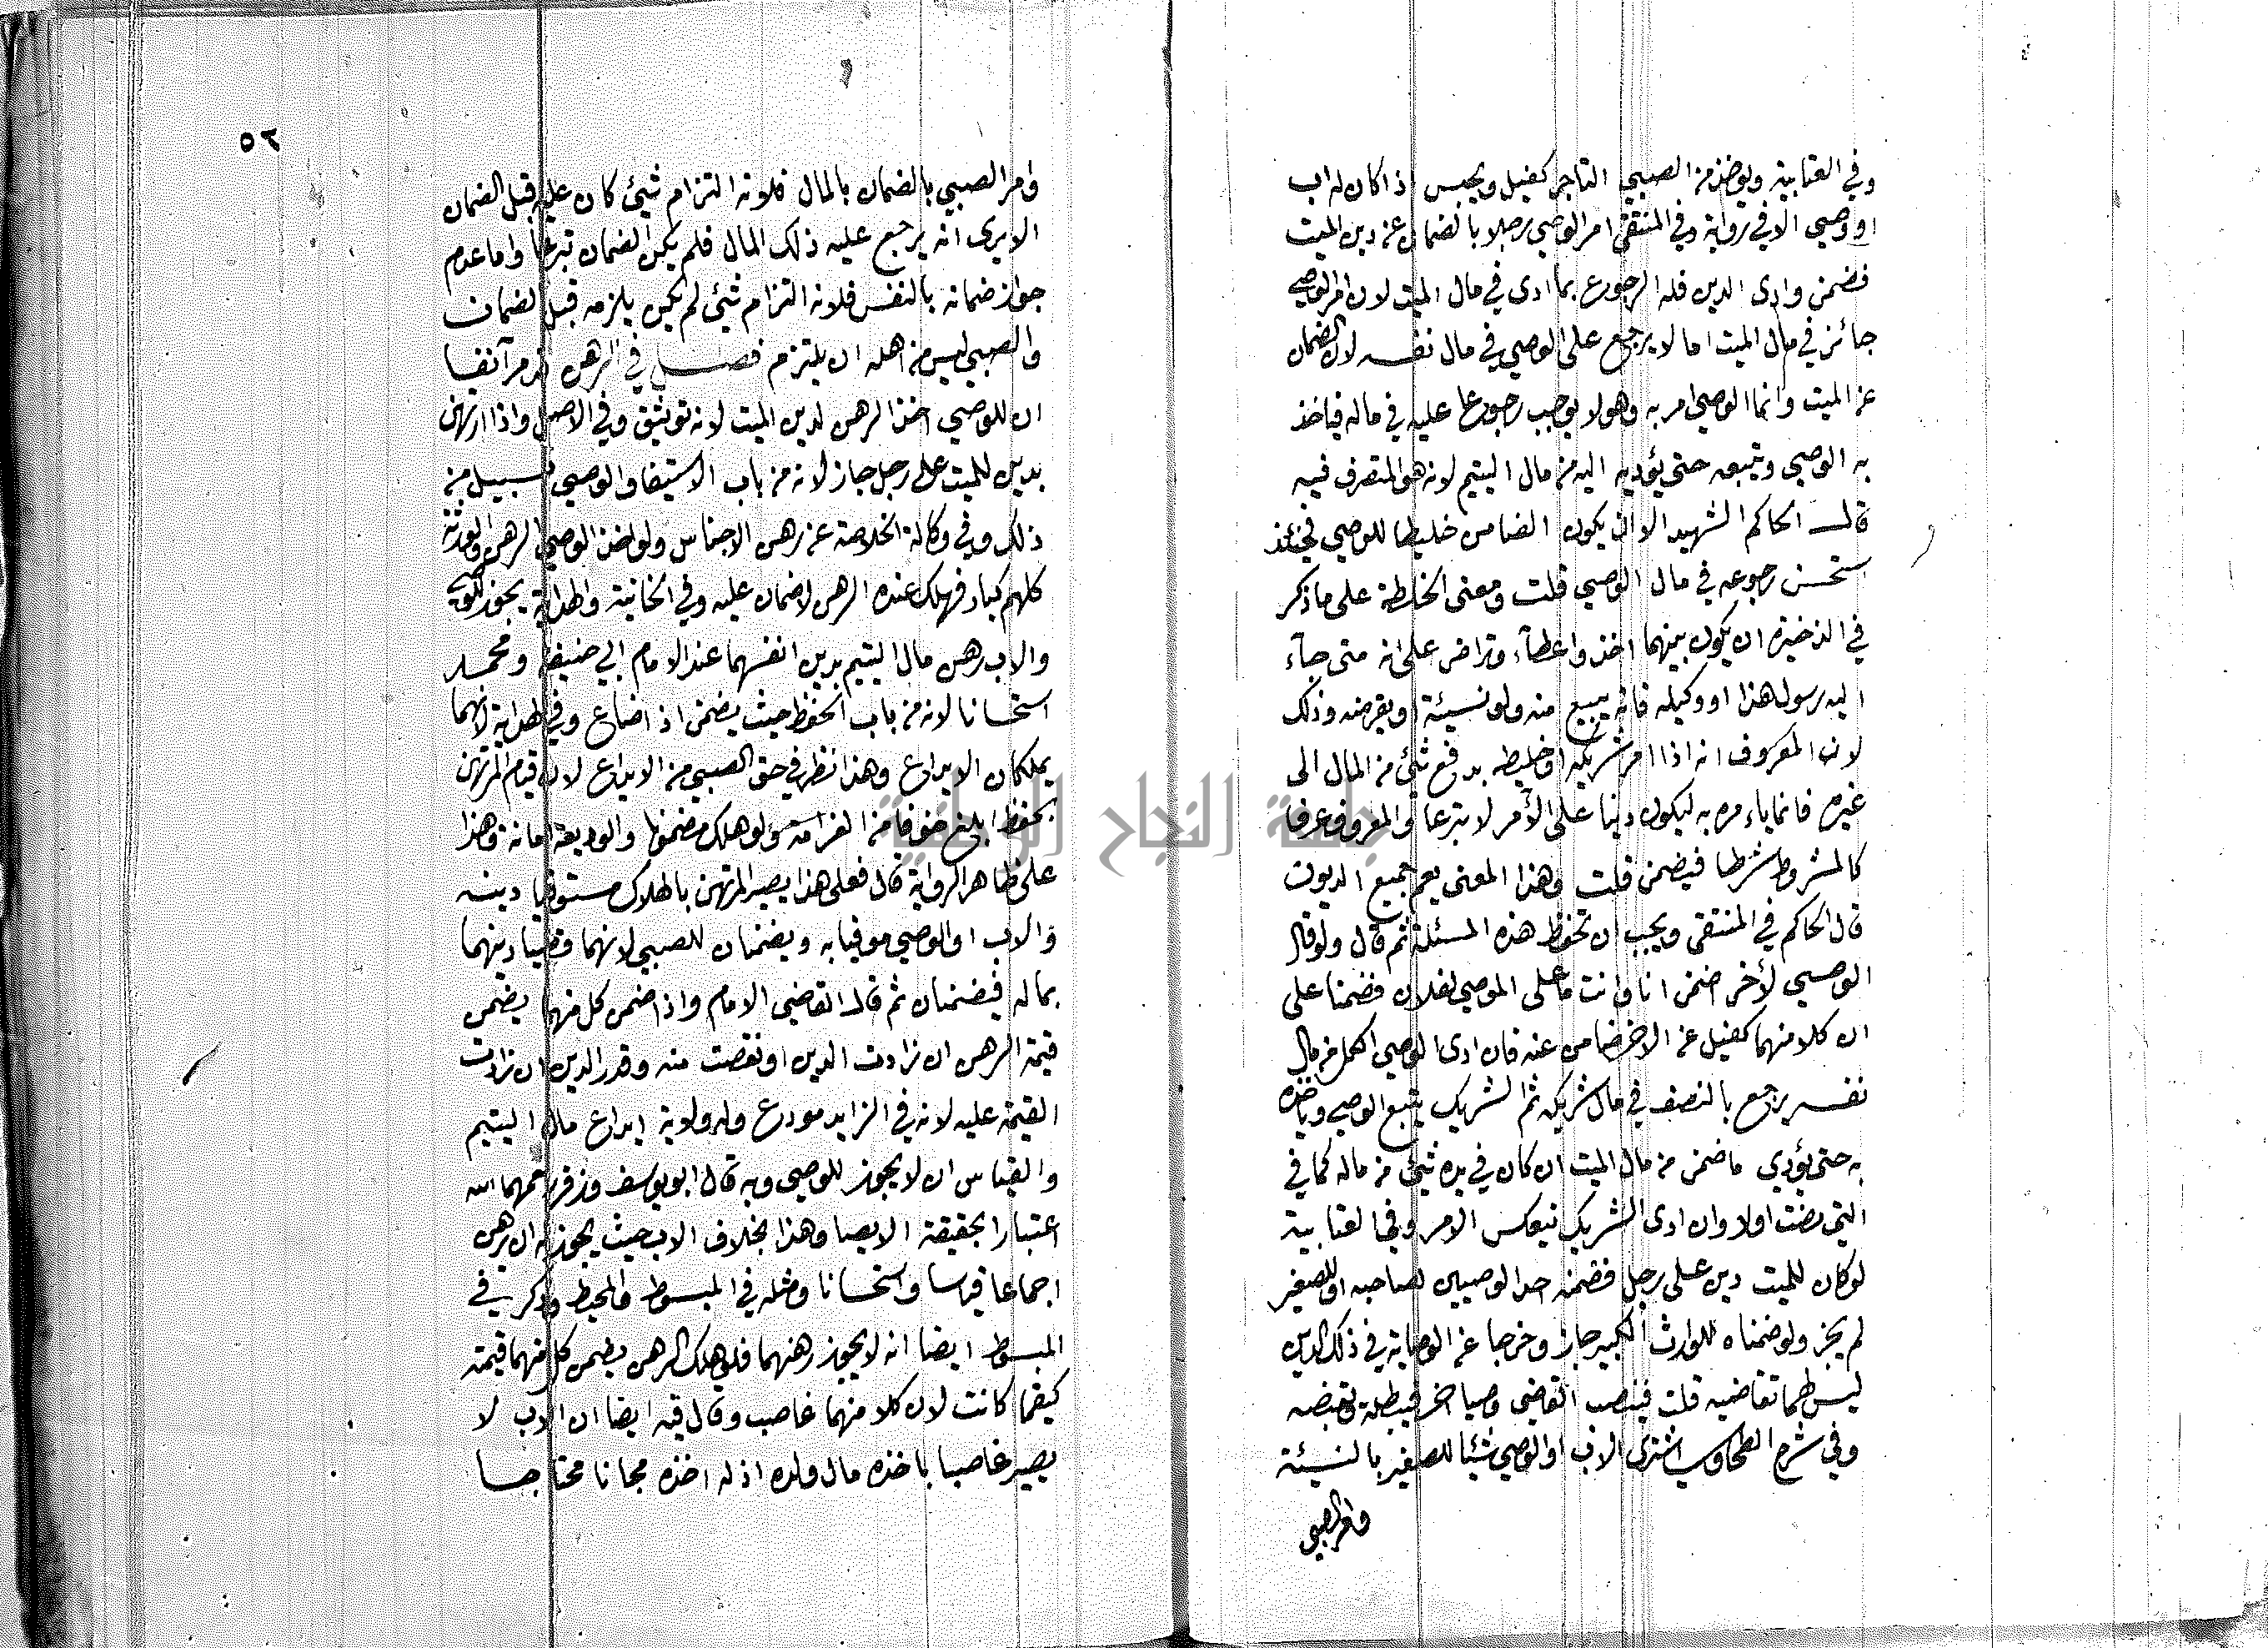 وفي العتابية ويؤخذ من الصبي التاجر كفيل ويحبس اذا كان له اب
او وصي الا في رواية وفي المنتقى امر الوصي رجلا بالضمان عن دين الميت
فضمن وادى الدين فله الرجوع بما ادى في مال الميت لان امر الوصي
جائز في مال الميت اما لا يرجع على الوصي في مال نفسه لان الضمان
عن الميت وانما الوصي امر به وهو لا يوجب رجوعا عليه في ماله فياخذ
به الوصي ويتبعه حتى يؤديه اليه من مال اليتيم لانه هو المتصرف فيه
قال الحاكم الشهيد الا ان يكون الضامن خليطا للوصي فحينئذ
استحسن رجوعه في مال الوصي قلت ومعنى الخلطة على ما ذكر
في الذخيرة ان يكون بينهما اخذ واعطآء وتراض على انه متى جآء
اليه رسول هذا او وكيله فانه يبيع منه ولو نسيئة ويقرضه وذلك
لان المعروف انه اذا امر شريكه او خليطه بدفع شئ من المال الى
غيره فانما ياءمره به ليكون دينا على الآمر لا تبرعا والمعروف عرفا
كالمشروط شرطا فيضمن قلت وهذا المعنى يعم جميع الديون
قال الحاكم في المنتقى ويجب ان تحفظ هذه المسئلة ثم قال ولو قال
الوصي لأخر اضمن انا وانت ما على الموصي لفلان فضمنا على
ان كلا منهما كفيل عن الاخر ضامن عنه فان ادى الوصي الكل من مال
نفسه يرجع بالنصف في مال شريكه ثم الشريك يتبع الوصي وياخذه
به حتى يؤدي ما ضمن من مال الميت ان كان في يده شئ من ماله كما في
التي مضت اولا وان ادى الشريك فيعكس الامر وفي العتابية
لو كان للميت دين على رجل فضمنه احد الوصيين لصاحبه او للصغير
لم يجز ولو ضمناه للوارث الكبير جاز وخرجا عن الوصاية في ذلك الدين
ليس لهما تقاضيه قلت فينصب القاضي وصيا اخر فيطلبه ويقبضه
وفي شرح الطحاوي اشترى الاب او الوصي شيئا للصغير بالنسيئة
وامر الصبي
٥٢
وامر الصبي بالضمان بالمال فلانه التزام شئ كان عليه قبل الضمان
الا يرى انه يرجع عليه ذلك المال فلم يكن الضمان تبرعا واما عدم
جواز ضمانه بالنفس فلانه التزام شئ لم يكن يلزمه قبل الضمان
والصبي ليس من اهله ان يلتزم فصل في الرهن قد مر آنفا
ان للوصي اخذ الرهن لدين الميت لانه توثيق وفي الاصل واذا ارتهن
بدين للميت على رجل جاز لانه من باب الاستيفا والوصي بسبيل من
ذلك وفي وكالة الخلاصة عن رهن الاجناس ولو اخذ الوصي الرهن والورثة
كلهم كبار فهلك عنده الرهن لا ضمان عليه وفي الخانية والهداية يجوز للوصي
والاب رهن مال اليتيم بدين انفسهما عند الامام ابي حنيفة ومحمد
استحسانا لانه من باب الحفظ حيث يضمن اذا ضاع وفي الهداية لانهما
يملكان الايداع وهذا انظر في حق الصبي من الايداع لان قيام المرتهن
بحفظه ابلغ خوفا من الغرامة ولو هلك مضمونا والوديعة امانة وهذا
على ظاهر الرواية قال فعلى هذا يصير المرتهن بالهلاك مستوفيا دينه
والاب او الوصي موفيا به ويضمنان للصبي لانهما قضيا دينهما
بماله فيضمنان ثم قال القاضي الامام واذا ضمن كل منهما يضمن
قيمة الرهن ان زادت الدين او نقصت منه وقدر الدين ان زادت
القيمة عليه لانه في الزايد مودع وله ولاية ايداع مال اليتيم
والقياس ان لا يجوز للوصي وبه قال ابو يوسف وزفر رحمهما الله
اعتبارا بحقيقة الايصا وهذا بخلاف الاب حيث يجوز له ان يرهن
اجماعا قياسا واستحسانا ومثله في المبسوط والمحيط وذكر في
المبسوط ايضا انه لا يجوز رهنهما فلو هلك الرهن يضمن كل منهما قيمته
كيفما كانت لان كلا منهما غاصب وقال فيه ايضا ان الاب لا
يصير غاصبا باخذه مال ولده اذ له اخذه مجانا محتاجا
جامعة النجاح الوطنية